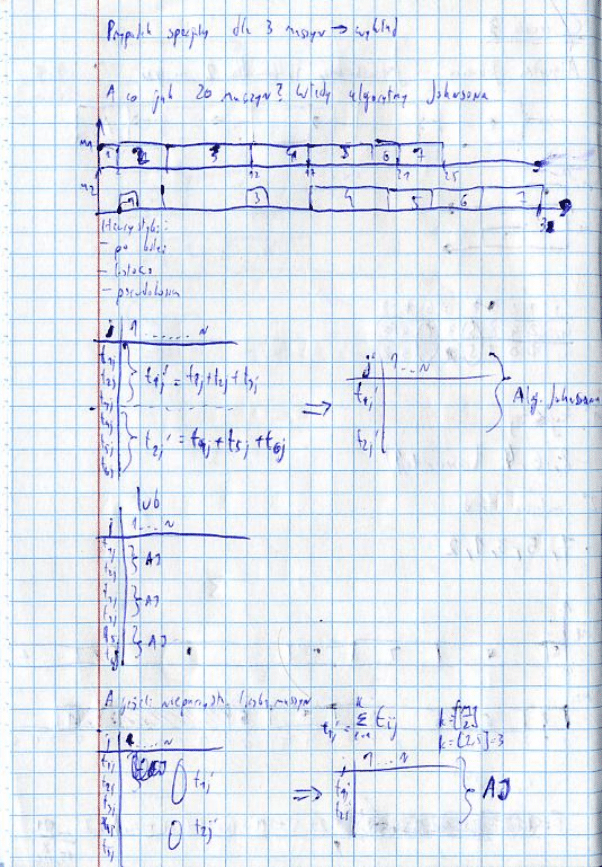 Przypadek specjalny dla 3 maszyn → wykład
A co jak 20 maszyn? Wtedy algorytmy Johnsona
m1 1 2 3 4 5 6 7
12 17 21 25
m2 1 3 4 5 6 7
Heurystyki:
- po kolei
- losowa
j 1 ...... n
t1j
t2j
t3j
t4j
t5j
t6j
t1j' = t1j + t2j + t3j
t2j' = t4j + t5j + t6j
⇒
j 1...n
t1j'
t2j'
Alg. Johnsona
lub
j 1....n
t1j
t2j } AJ
t3j
t4j } AJ
t5j
t6j } AJ
A jeżeli nieparzysta liczba maszyn
t1j' = Σ tij
k = [2,5] = 3
j 1.....n
t1j
t2j
t3j
t4j
t5j
t1j'
t2j'
⇒
j 1...n
t1j'
t2j'
} AJ